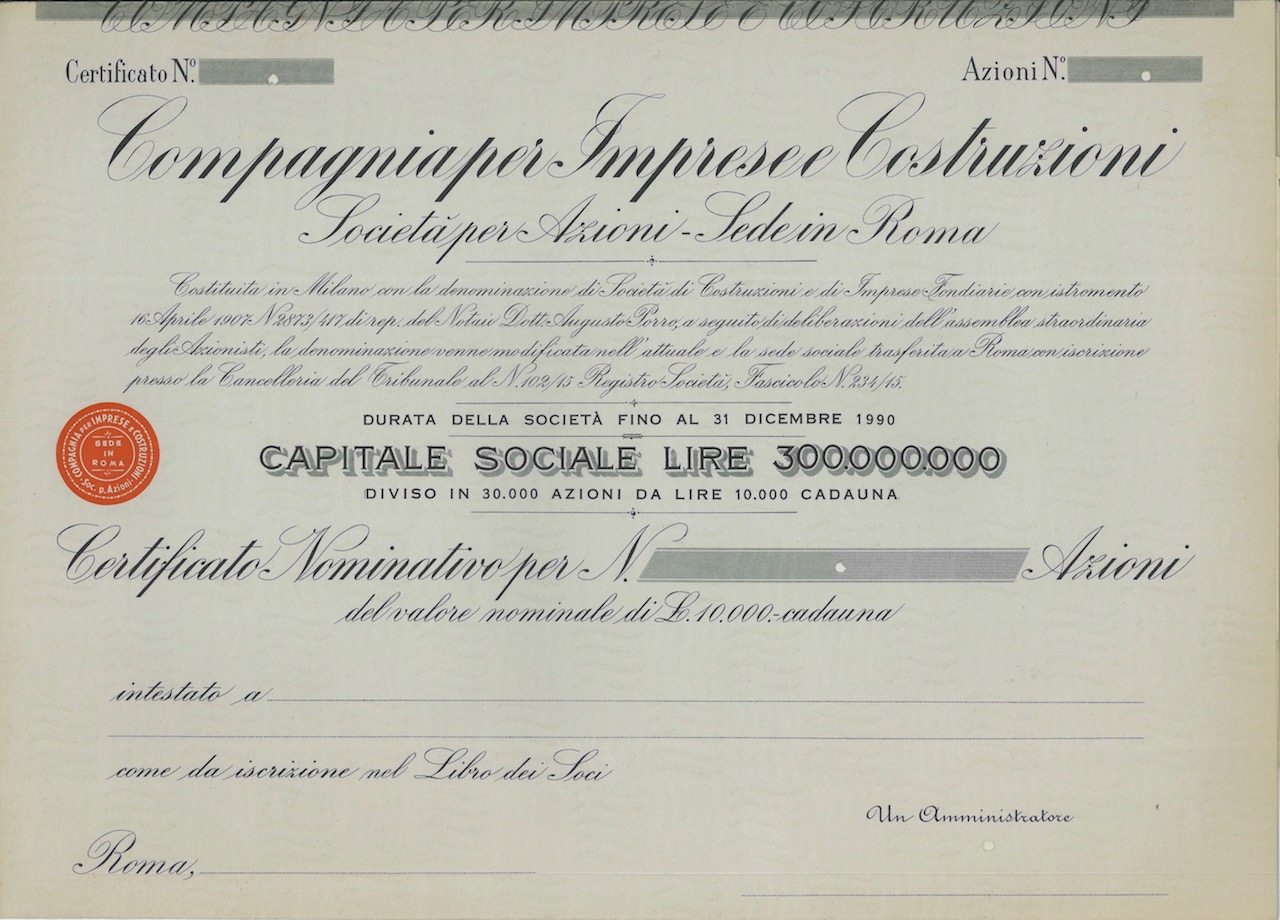 COMPAGNIA PER IMPRESE E COSTRUZIONI
Certificato Nº.
Azioni Nº.
Compagnia per Imprese e Costruzioni
Società per Azioni - Sede in Roma
Costituita in Milano con la denominazione di Società di Costruzioni e di Imprese Fondiarie con istromento
16 Aprile 1907 N 2873/417 di rep. del Notaio Dott. Augusto Porro, a seguito di deliberazioni dell'assemblea straordinaria
degli Azionisti, la denominazione venne modificata nell'attuale e la sede sociale trasferita a Roma con iscrizione
presso la Cancelleria del Tribunale al N. 102/15 Registro Società, Fascicolo N. 234/15.
DURATA DELLA SOCIETÀ FINO AL 31 DICEMBRE 1990
CAPITALE SOCIALE LIRE 300.000.000
DIVISO IN 30.000 AZIONI DA LIRE 10.000 CADAUNA
COMPAGNIA PER IMPRESE E COSTRUZIONI
Soc. p. Azioni
SEDE
IN
ROMA
Certificato Nominativo per N. Azioni
del valore nominale di £. 10.000.- cadauna
intestato a
come da iscrizione nel Libro dei Soci
Un Amministratore
Roma,